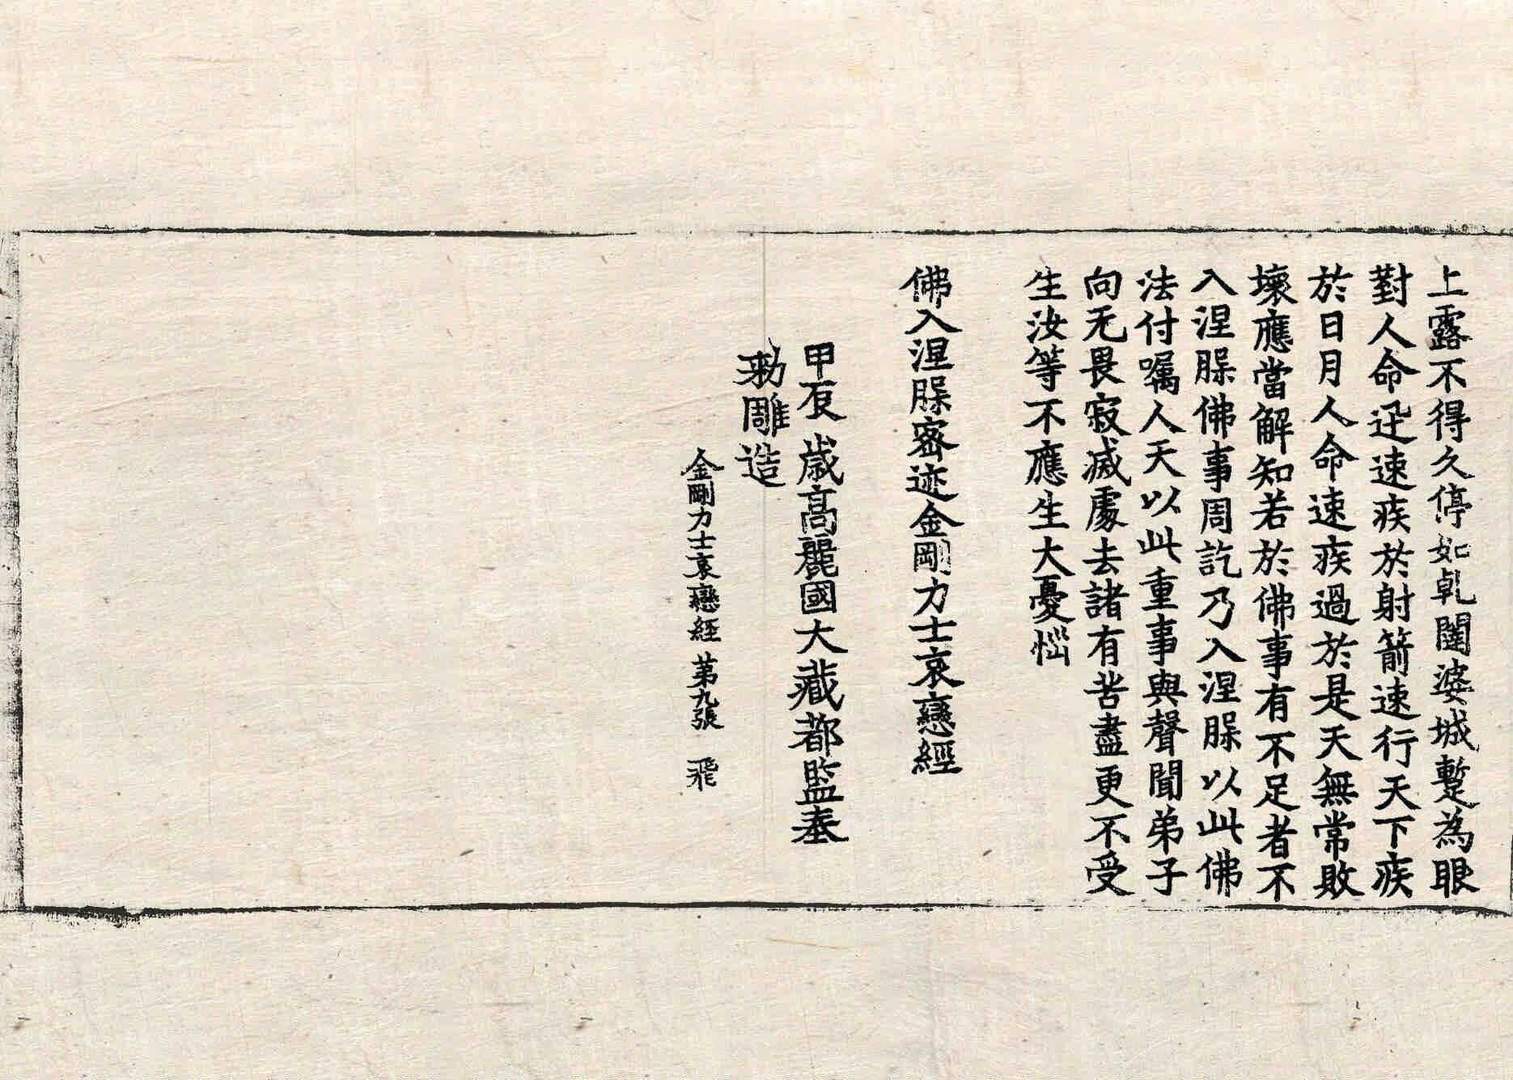 上露不得久停如乹闥婆城蹔為眼
對人命迅速疾於射箭速行天下疾
於日月人命速疾過於是天無常敗
壞應當解知若於佛事有不足者不
入涅槃佛事周訖乃入涅槃以此佛
法付囑人天以此重事與聲聞弟子
向无畏寂滅處去諸有苦盡更不受
生汝等不應生大憂惱
佛入涅槃密迹金剛力士哀戀經
甲辰歲高麗國大藏都監奉
勅雕造
金剛力士哀戀經 第九張 飛